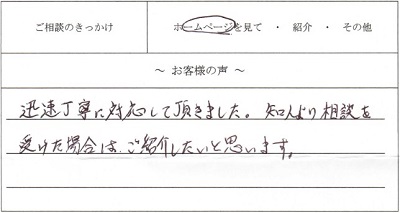 ご相談のきっかけ
ホームページを見て ・ 紹介 ・ その他
～ お客様の声 ～
迅速丁寧に対応して頂きました。知人より相談を
受けた場合は、ご紹介したいと思います。